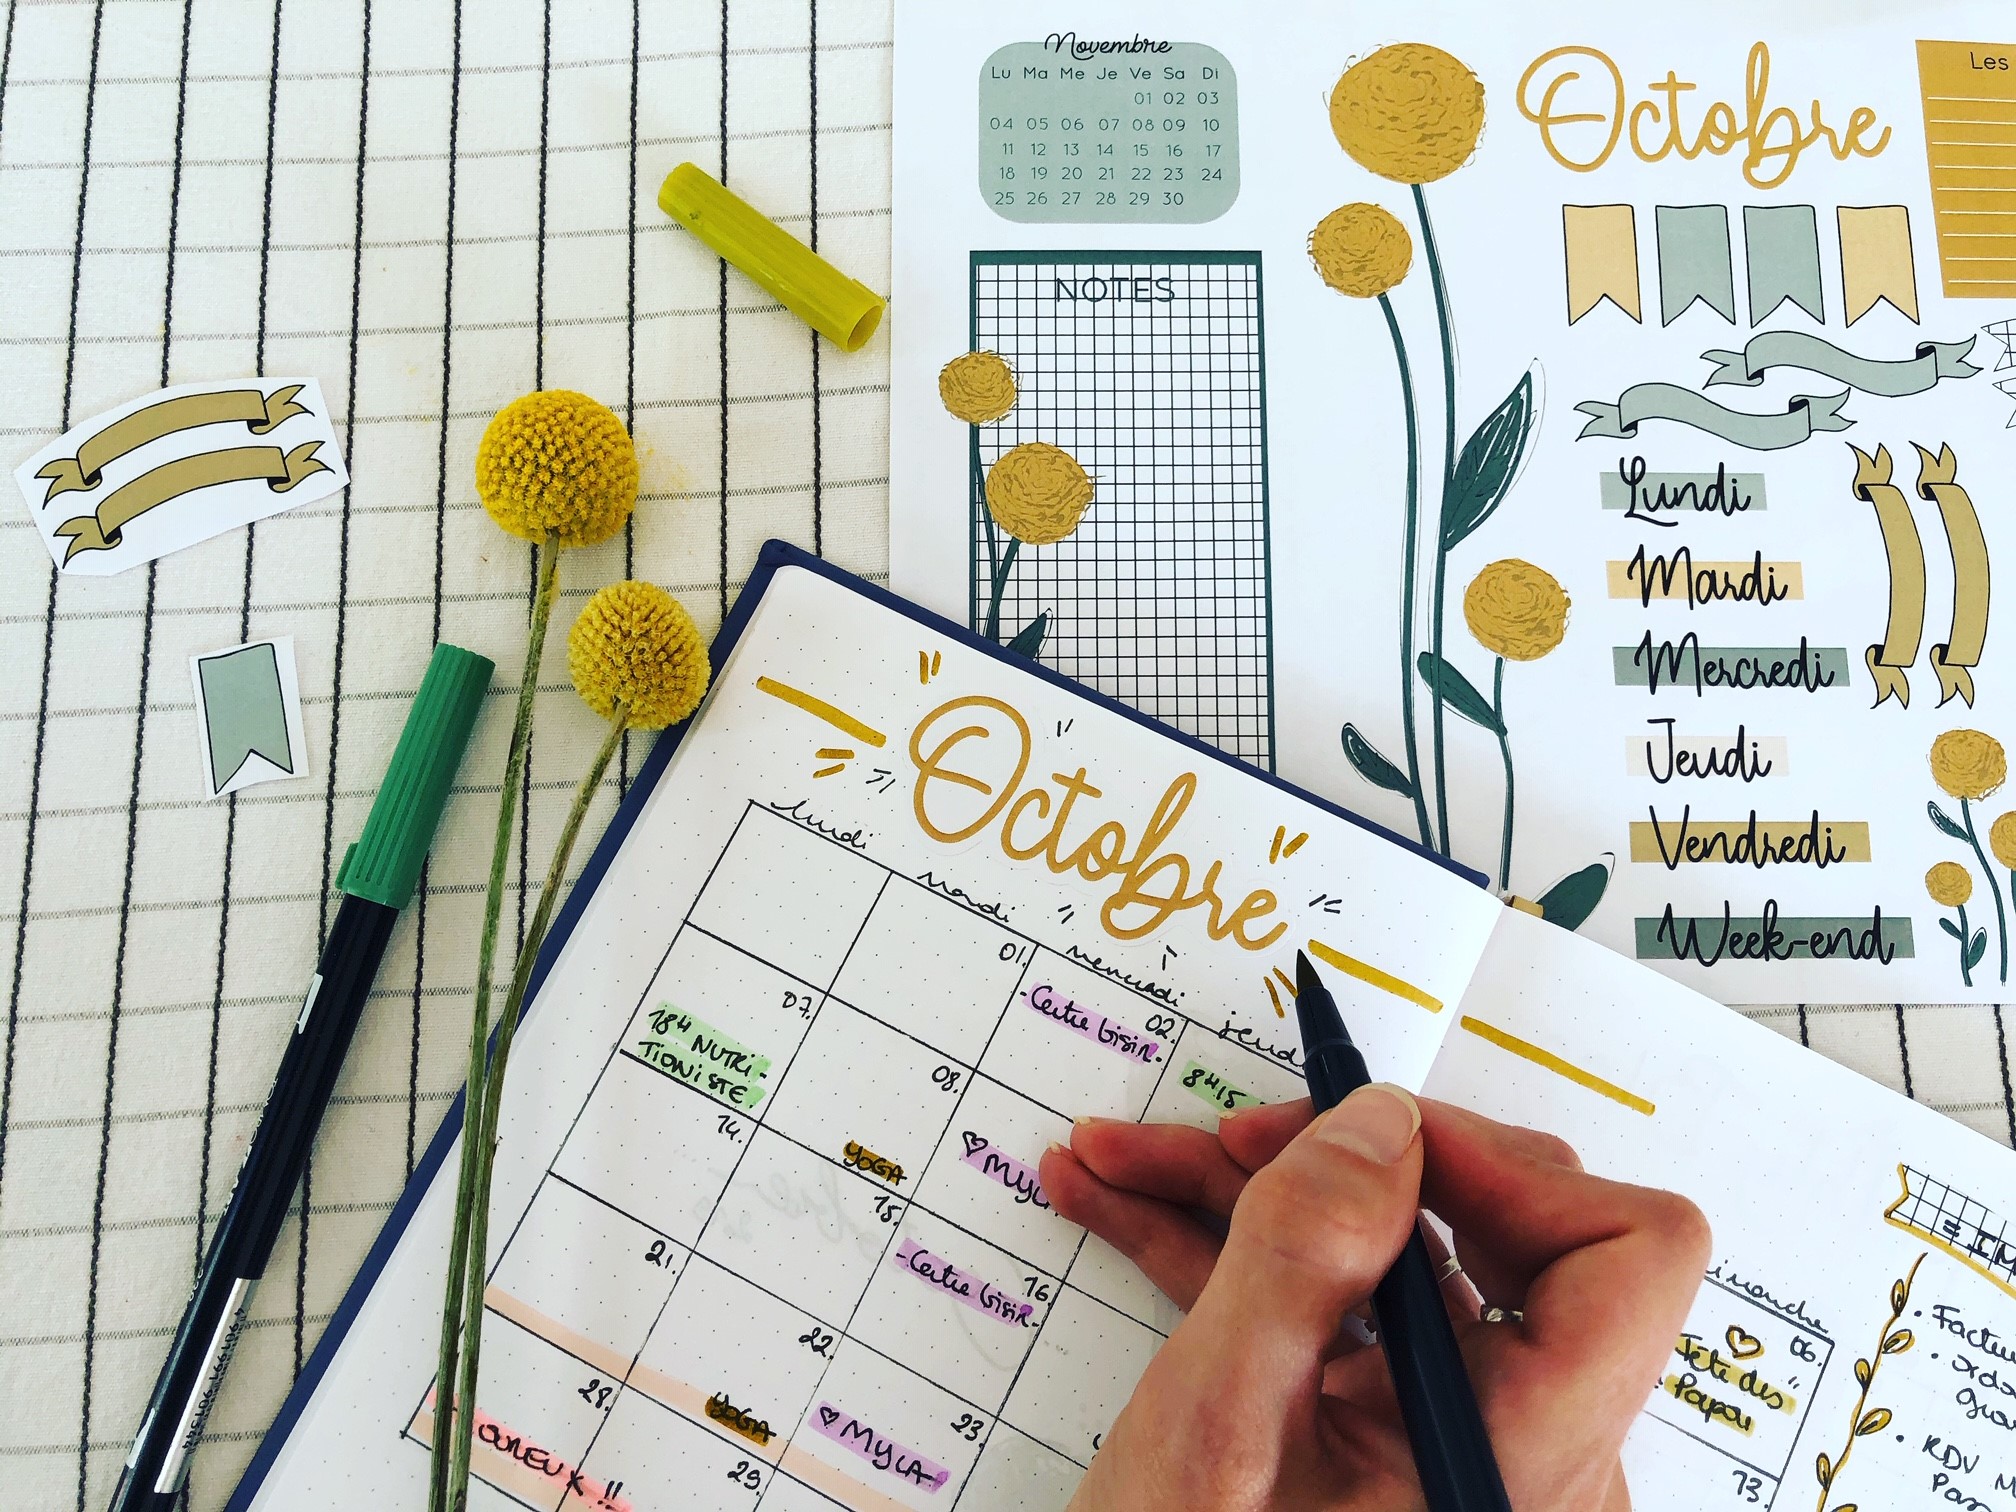 Novembre
Lu Ma Me Je Ve Sa Di
01 02 03
04 05 06 07 08 09 10
11 12 13 14 15 16 17
18 19 20 21 22 23 24
25 26 27 28 29 30
NOTES
Octobre
Les
Lundi
Mardi
Mercredi
Jeudi
Vendredi
Week-end
Octobre
lundi
mardi
mercredi
jeud
01.
02.
- Centre loisir -
8H15
07.
18H NUTRI-
TIONISTE.
08.
♡ MYL
14.
YOGA
15.
16.
- Centre loisir -
21.
22.
23.
YOGA
♡ MYLA
28.
OUREUX !!
29.
imanche
06.
Fête des
Papou
13.
= IM
• Factu
•
• RDV